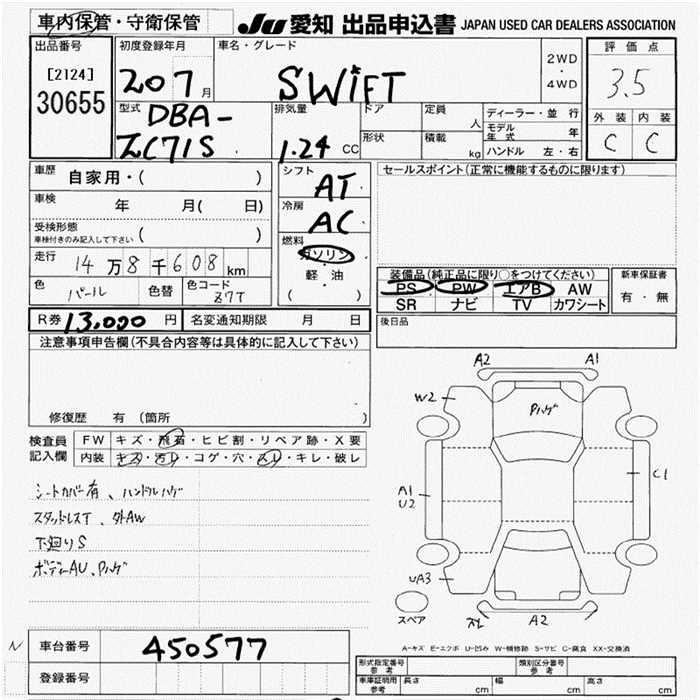 車内保管・守衛保管
JU 愛知 出品申込書 JAPAN USED CAR DEALERS ASSOCIATION
出品番号
[2124]
30655
初度登録年月
20 7 月
車名・グレード
SWiFT
2WD
・
4WD
評価点
3.5
外装 内装
C C
型式
DBA-
ZC71S
排気量
1.24 CC
ドア
定員
人
形状
積載
kg
ディーラー・並行
モデル年式 年
ハンドル 左・右
車歴 自家用・( )
車検 年 月( 日)
受検形態
車検付きのみ記入して下さい ( )
走行 14万8千608 km
色 パール 色替 色コード Z7T
シフト AT
冷房 AC
燃料
ガソリン
・
軽・油
( )
セールスポイント(正常に機能するものに限ります)
装備品(純正品に限り○をつけてください)
PS PW エアB AW
SR ナビ TV カワシート
新車保証書
有・無
R券 13,000 円 名変通知期限 月 日
後日品
注意事項申告欄(不具合内容等は具体的に記入して下さい)
修復歴 有(箇所 )
検査員 FW キズ・飛石・ヒビ割・リペア跡・X要
記入欄 内装 キズ・汚レ・コゲ・穴・スレ・キレ・破レ
シートカバー有、ハンドルハゲ
スタッドレスT、外AW
下廻りS
ボディーAU、Pハゲ
A2 A1
W2
Pハゲ
A1
U2
C1
UA3
スペア
スレ A2
N 車台番号 450577
登録番号
A-キズ E-エクボ U-凹み W-補修跡 S-サビ C-腐食 XX-交換済
形式指定番号 参考 類別区分番号 参考
車庫証明用 参考 長さ cm 幅 cm 高さ cm